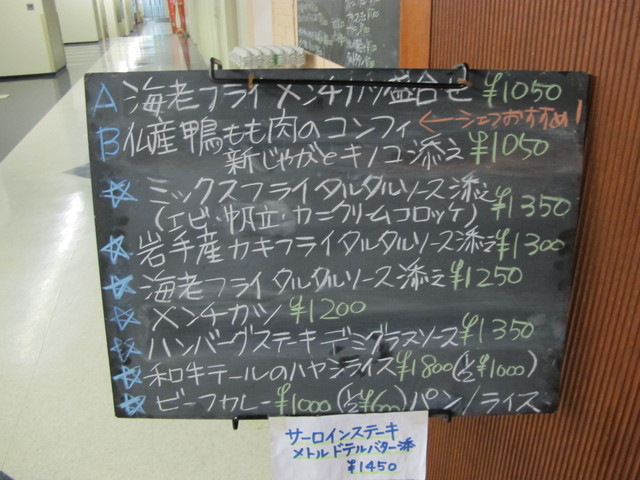 A 海老フライ メンチカツ盛合せ ¥1050
B 仏産鴨もも肉のコンフィ ←シェフおすすめ！
新じゃがとキノコ添え ¥1050
☆ ミックスフライタルタルソース添え
(エビ・帆立・カニクリームコロッケ) ¥1350
☆ 岩手産カキフライタルタルソース添え ¥1300
☆ 海老フライタルタルソース添え ¥1250
☆ メンチカツ ¥1200
☆ ハンバーグステーキデミグラスソース ¥1350
☆ 和牛テールのハヤシライス ¥1800 (½ ¥1000)
☆ ビーフカレー ¥1000 (½ ¥600) パン/ライス
サーロインステーキ
メトルドテルバター添
¥1450